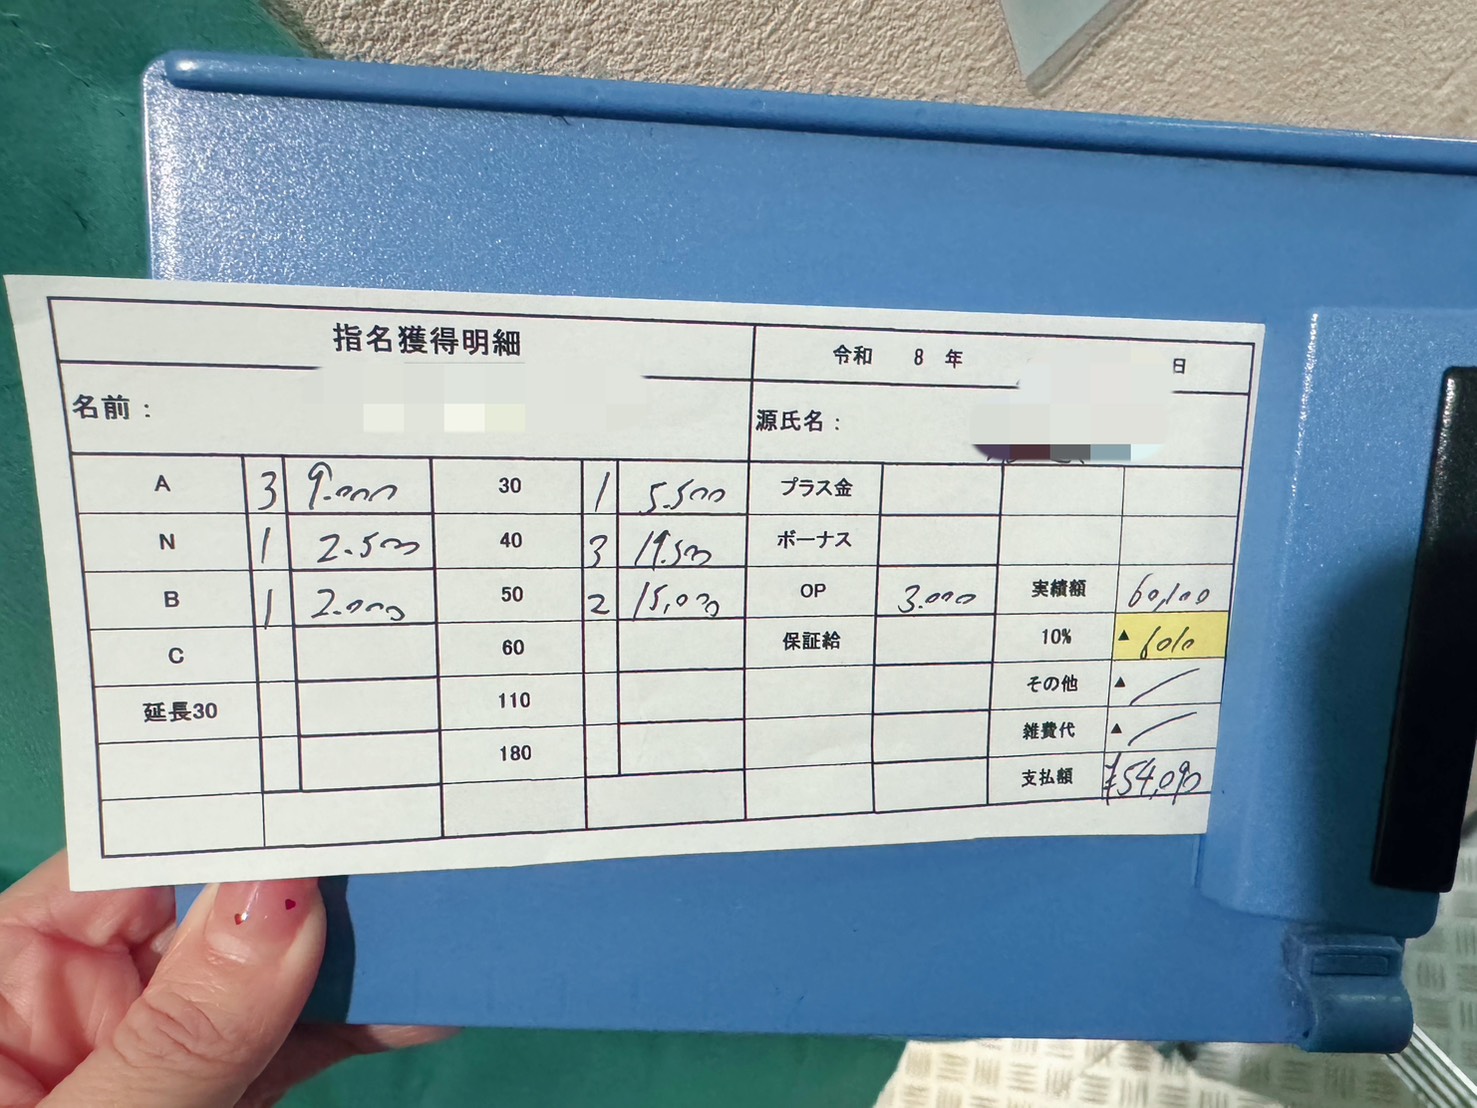 指名獲得明細 令和 8 年 日
名前： 源氏名：
A 3 9.000 30 1 5.500 プラス金
N 1 2.500 40 3 19.500 ボーナス
B 1 2.000 50 2 15,000 OP 3.000 実績額 60,100
C 60 保証給 10% ▲ 6010
延長30 110 その他 ▲
180 雑費代 ▲
支払額 ¥54,090